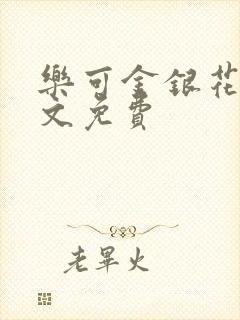 樂可金銀花
文免費
老畢火